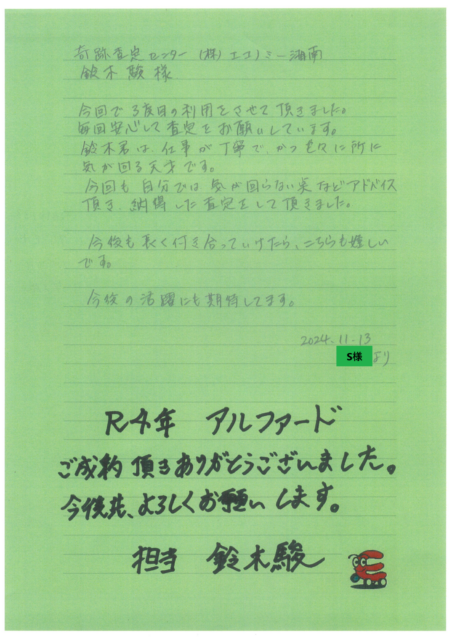 奇跡査定センター (株)エコノミー湘南
鈴木駿様
今回で3度目の利用をさせて頂きました。
毎回安心して査定をお願いしています。
鈴木君は、仕事が丁寧で、かつ色々に所に
気が回る天才です。
今回も自分では気が回らない点などアドバイス
頂き、納得した査定をして頂きました。
今後も長く付き合っていけたら、こちらも嬉しい
です。
今後の活躍にも期待してます。
2024.11.13
S様 より
R4年 アルファード
ご成約頂きありがとうございました。
今後共、よろしくお願いします。
担当 鈴木駿